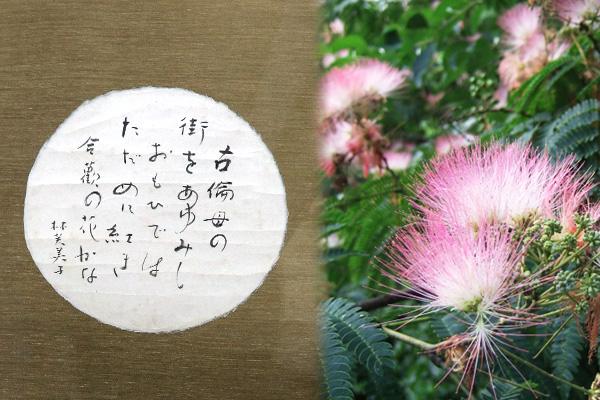 古倫母の
街をあゆみし
おもひでは
ただめに紅き
合歡の花かな
林芙美子